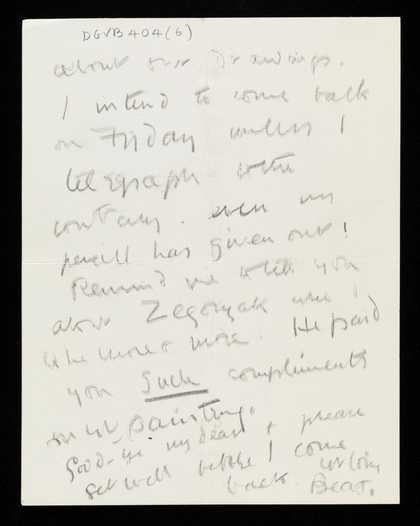 DGVB 404 (6)
about our drawings.
I intend to come back
on Friday unless I
telegraph to the
contrary. even my
pencil has given out!
Remind me to tell you
about
more & more. He paid
you such compliments
on yr painting.
Good-bye my dear & please
get well before I come
back
Beat.